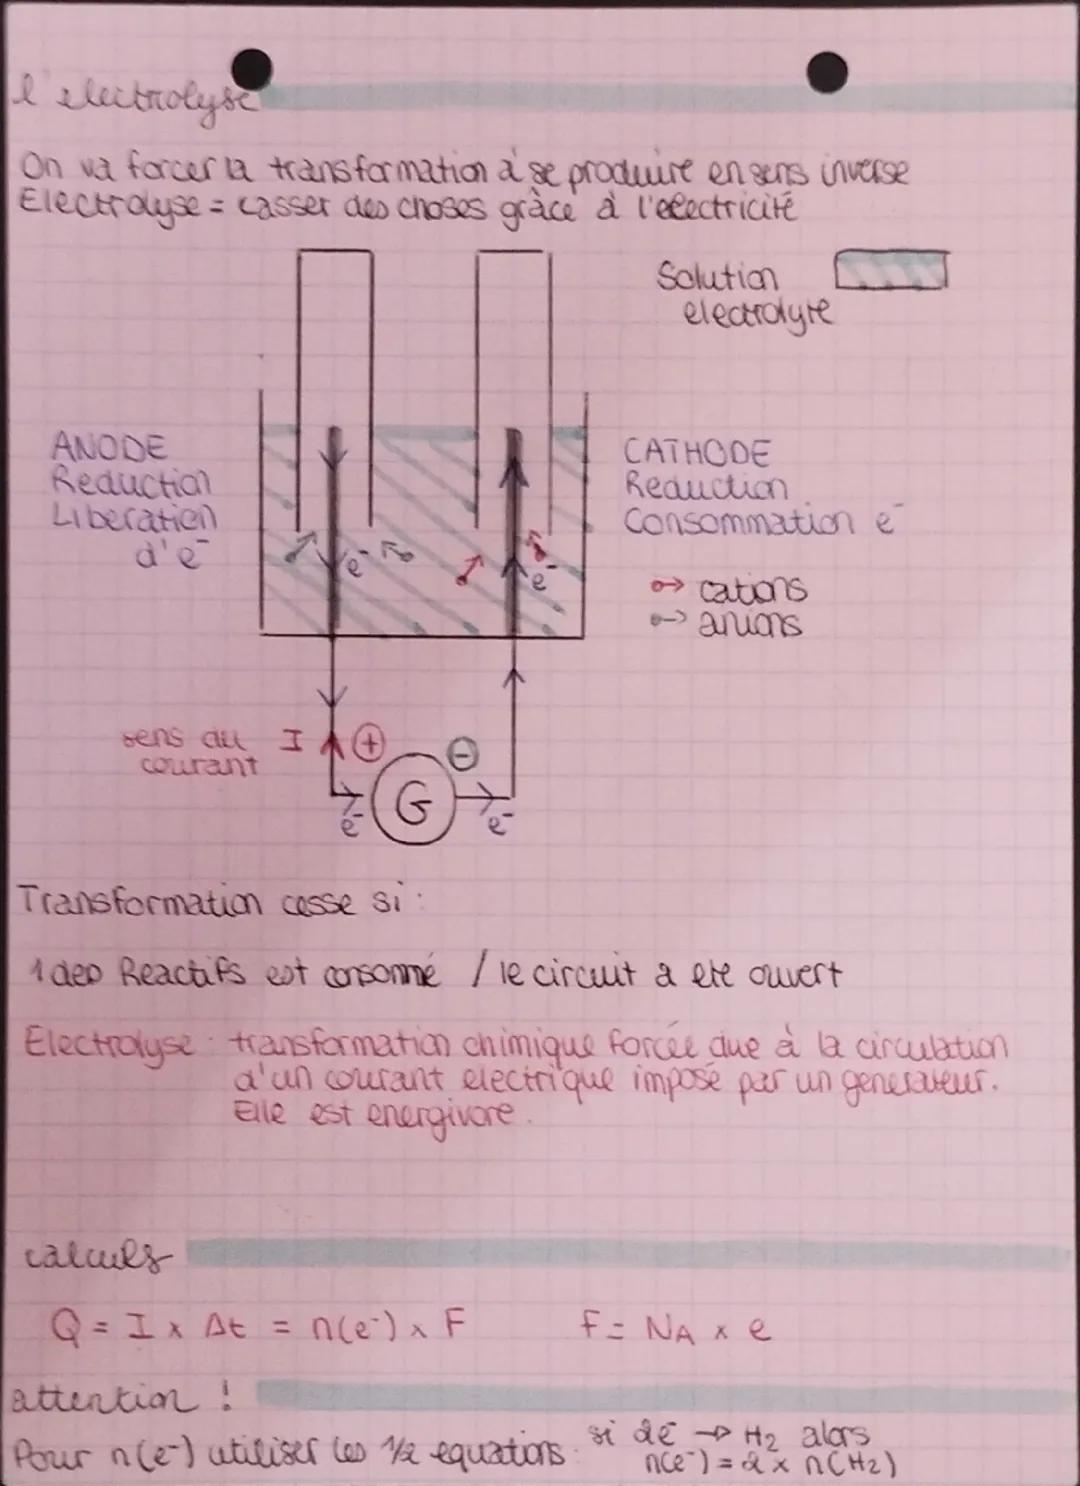 l'electrolyse
On va forcer la transformation à se produire en sens inverse
Electrolyse = casser des choses grâce à l'electricité
Solution
electrolyte
ANODE
Reduction
Liberation
d'e⁻
CATHODE
Reduction
Consommation e⁻
e⁻
e⁻
cations
anions
sens du I
courant
+
-
G
e⁻
e⁻
Transformation cesse si :
1 des Reactifs est consommé / le circuit a ete ouvert
Electrolyse : transformation chimique forcée due à la circulation
d'un courant electrique imposé par un generateur.
Elle est energivore.
calculs
Q = I x Δt = n(e⁻) x F
F = NA x e
attention !
Pour n(e⁻) utiliser les 1/2 equations :
si 2e⁻ → H2 alors
n(e⁻) = 2 x n(H2)